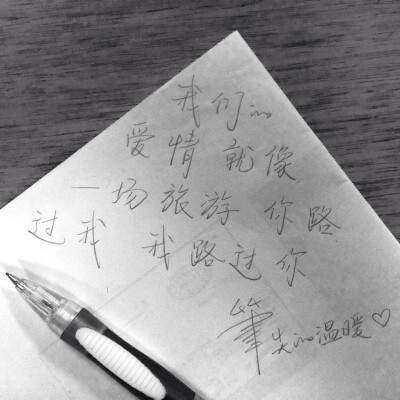 我们的
爱情就像
一场旅游 你路
过我 我路过你
筆尖的温暖♡